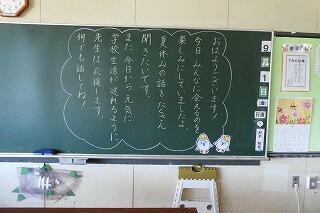 おはようございます！
今日、みんなに会えるのを
楽しみにしていましたよ。
夏休みの話をたくさん
聞きたいです。
また、今日から元気に
学校生活が送れるように
先生は応援します。
何でも話してね！
9
月
1
日
(金)
日直